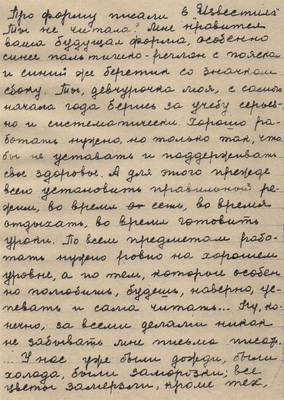 Про форму писали в „Известиях“
Ты не читала? Мне нравится
ваша будущая форма, особенно
синее пальтишко-реглан с пояском
и синий же беретик со значком
сбоку. Ты, девчурочка моя, с самого
начала года берись за учебу серьез-
но и систематически. Хорошо ра-
ботать нужно, но только так, что
бы не уставать и поддерживать
свое здоровье. А для этого прежде
всего установить правильной ре-
жим, во время есть, во время
отдыхать, во время готовить
уроки. По всем предметам рабо-
тать нужно ровно на хорошем
уровне, а по тем, которое особен
но полюбишь, будешь, наверно, ус-
певать и сама читать... Ну, ко-
нечно, за всеми делами никак
не забывать мне письма писать.
... У нас уже были дожди, были
холода, были заморозки; все
цветы замерзли, кроме тех,